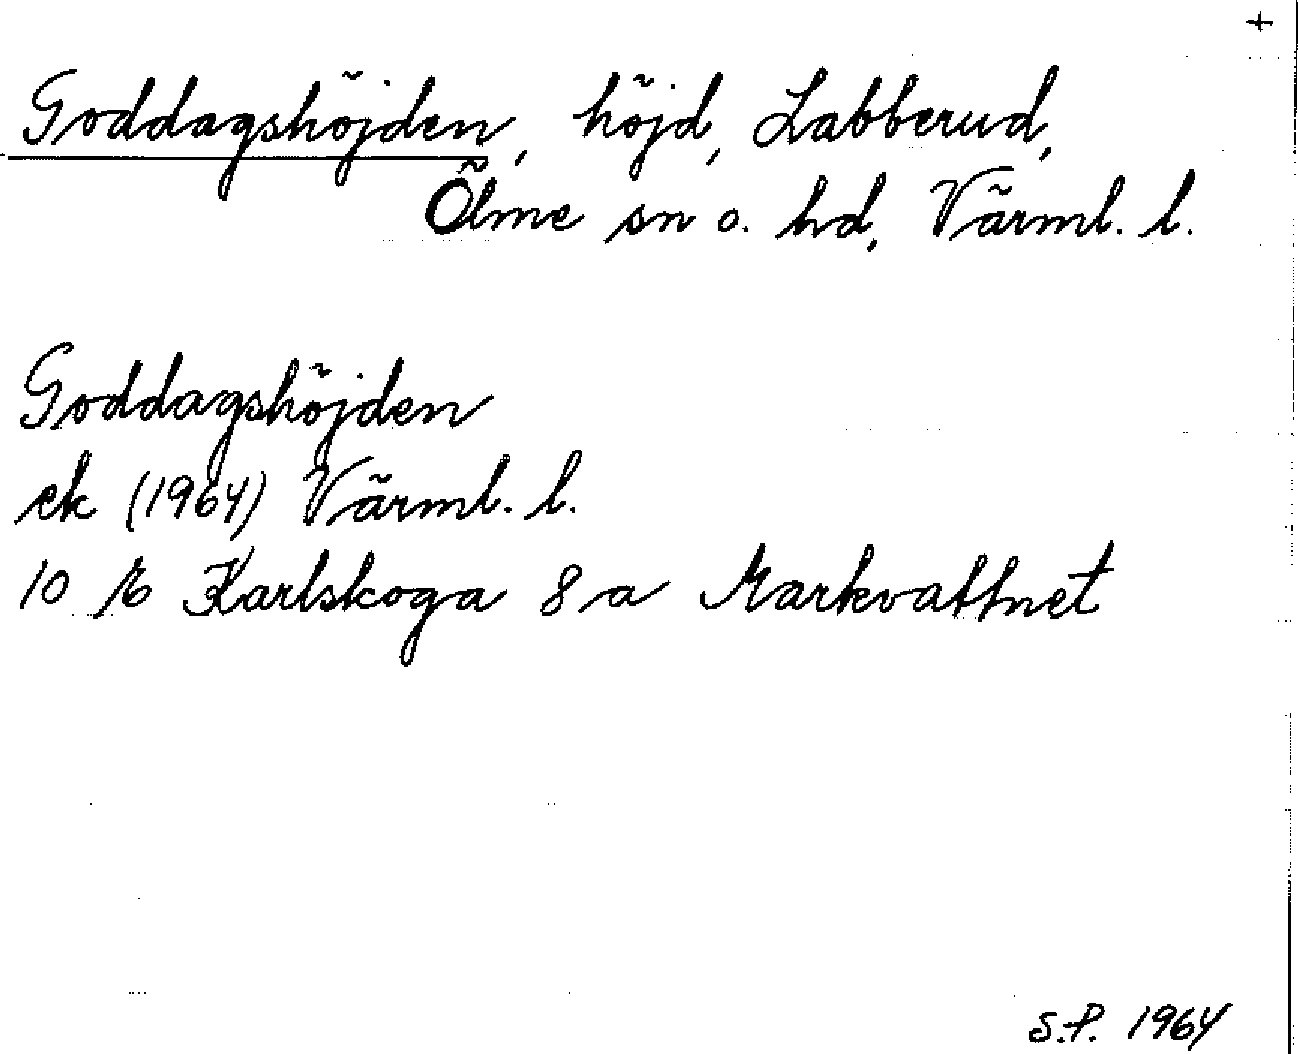 +
Goddagshöjden, höjd, Labberud,
Ölme sn o. hd, Värml. l.
Goddagshöjden
ek (1964) Värml. l.
10 E Karlskoga 8 a Markvattnet
S.P. 1964